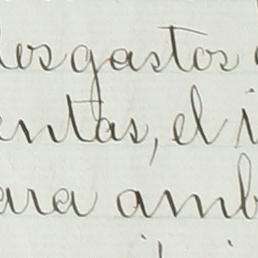 des gastos
entas, el i
ara amb